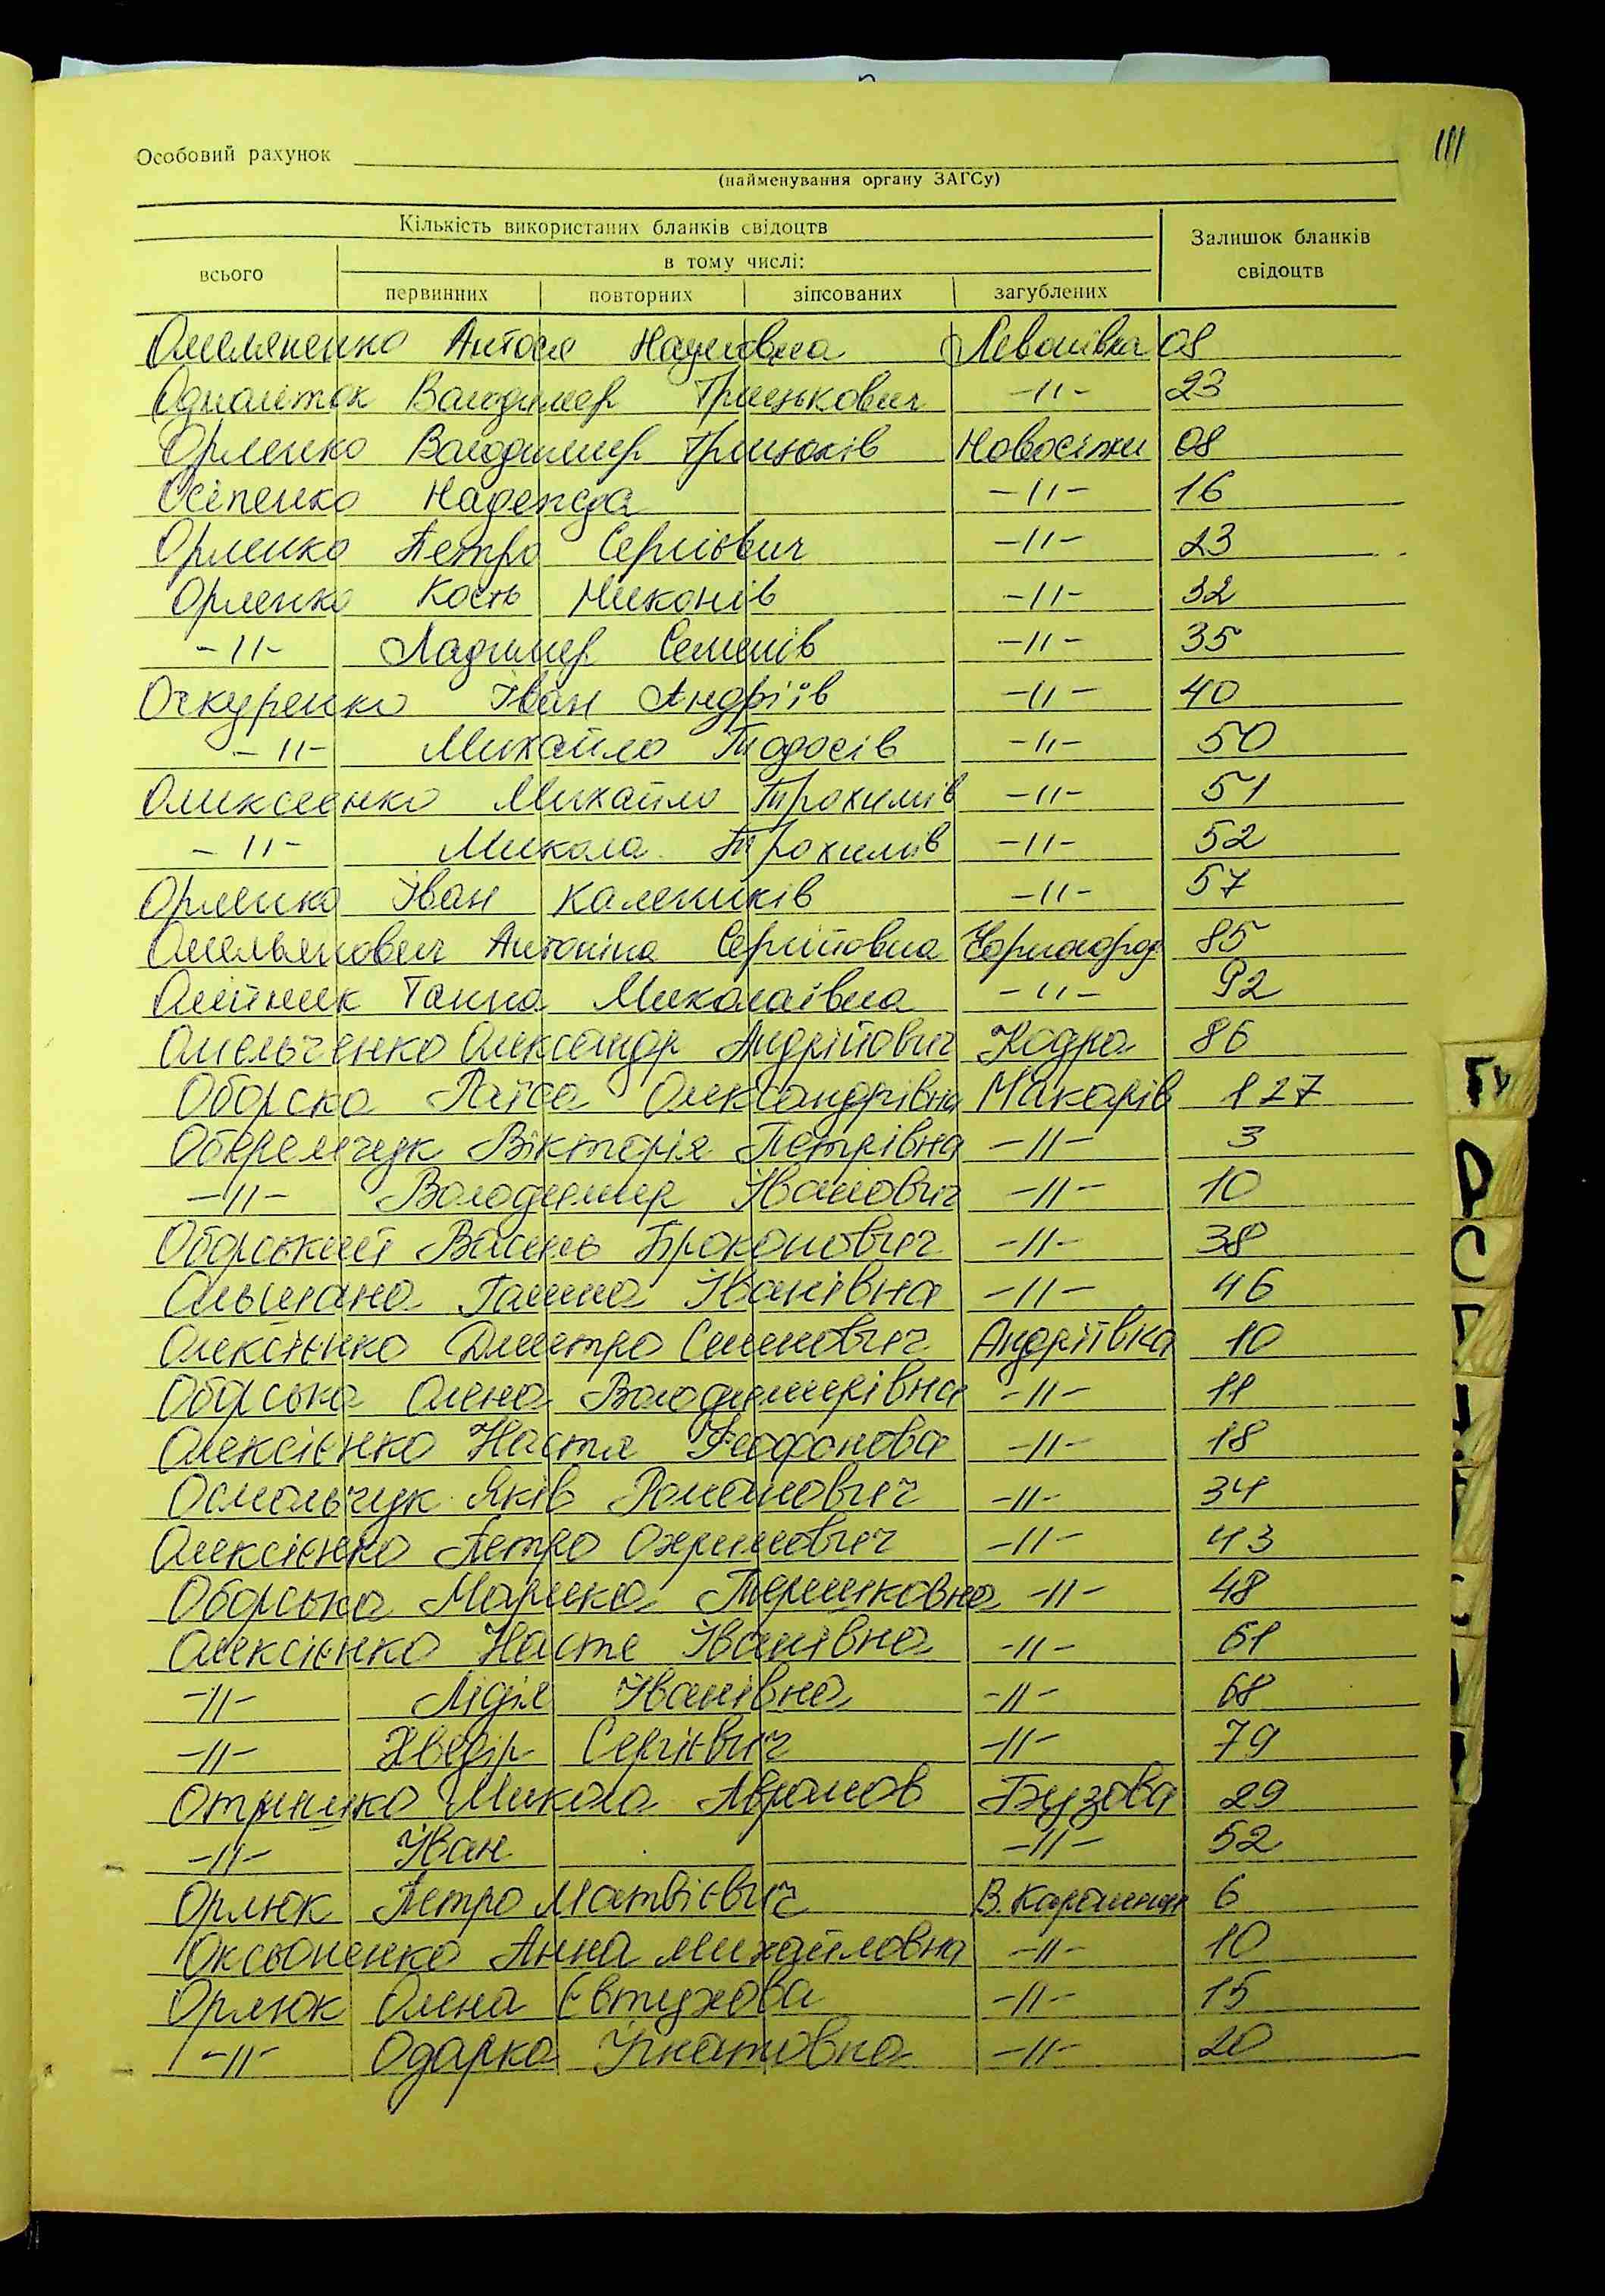 111
Особовий рахунок
(найменування органу ЗАГСу)
Кількість використаних бланків свідоцтв
Залишок бланків свідоцтв
всього
в тому числі:
первинних повторних зіпсованих загублених
Омеляненко Антося Наумовна Леваківка 08
Одноліток Володимер Грицькович -//- 23
Орленко Володимер Грицьків Новосілки 08
Осіпенко Надежда -//- 16
Орленко Петро Сергієвич -//- 23
Орленко Кость Никонів -//- 32
-//- Ладимер Семенів -//- 35
Очкуренко Іван Андріїв -//- 40
-//- Михайло Тодосів -//- 50
Олексеєнко Михайло Трохимів -//- 51
-//- Микола Трохимів -//- 52
Орленко Іван Калеників -//- 57
Омельянович Антоніна Сергійовна 85
Олійник Ганна Миколаївна -//- 92
Омельченко Олександр Андрійович Кодра 86
Оборска Раїса Олександрівна Макарів 127
Оберемчук Вікторія Петрівна -//- 3
-//- Володимер Іванович -//- 10
Оборський Василь Прокопович -//- 38
Ольшана Ганна Іванівна -//- 46
Олексієнко Дмитро Семенович Андріївка 10
Оборська Олена Володимерівна -//- 11
Олексієнко Настя -//- 18
Осмольчук Яків Романович -//- 34
Олексієнко Петро Охримович -//- 43
Оборська Марика -//- 48
Олексієнко Настя Іванівна -//- 61
-//- Лідія Іванівна -//- 68
-//- Хведір Сергієвич -//- 79
Микола Аврамов Бузова 29
-//- Іван -//- 52
Орлюк Петро Матвієвич В. Карашин 6
Оксьоненко Анна Михайловна -//- 10
Орлюк Олена Євтухова -//- 15
-//- Одарка Ігнатовна -//- 20